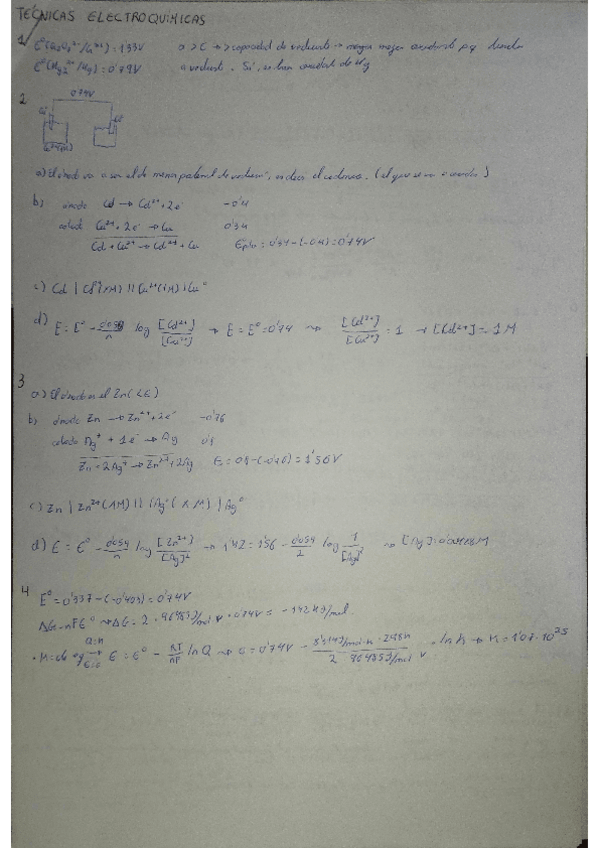 TECNICAS ELECTROQUÍMICAS
1
E°(Cr₂O₇²⁻/Cr³⁺) = 1'33V a > E → > capacidad de reducirse → mayor
E°(Hg₂²⁺/Hg) = 0'79V a reducirse. Sí, se
2
0'74V
a) El ánodo va a ser el de menor potencial de reducción, es decir el cadmio. (el que se va a oxidar)
b) ánodo Cd → Cd²⁺ + 2e⁻ -0'4
cátodo Cu²⁺ + 2e⁻ → Cu 0'34
Cd + Cu²⁺ → Cd²⁺ + Cu Epila = 0'34 - (-0'4) = 0'74V
c) Cd | Cd²⁺(1M) || Cu²⁺(1M) | Cu°
d) E = E° - 0'059/n log [Cd²⁺]/[Cu²⁺] → E = E° = 0'74 → [Cd²⁺]/[Cu²⁺] = 1 → [Cd²⁺] = 1M
3
a) El ánodo es el Zn (< E)
b) ánodo Zn → Zn²⁺ + 2e⁻ -0'76
cátodo Ag⁺ + 1e⁻ → Ag 0'8
Zn + 2Ag⁺ → Zn²⁺ + 2Ag E = 0'8 - (-0'76) = 1'56V
c) Zn | Zn²⁺(1M) || Ag⁺(x M) | Ag°
d) E = E° - 0'059/n log [Zn²⁺]/[Ag]² → 1'42 = 1'56 - 0'059/2 log 1/[Ag]² → [Ag]
4
E° = 0'337 - (-0'403) = 0'74V
ΔG = -nFE° → ΔG = 2 · 96485J/mol·V · 0'74V = -142KJ/mol.
· K = de eq Q=K E=0 E = E° - RT/nF ln Q → 0 = 0'74V - 8'314J/mol·K · 298K / 2 · 96485J/mol V · ln K → K = 1'07 · 10²⁵